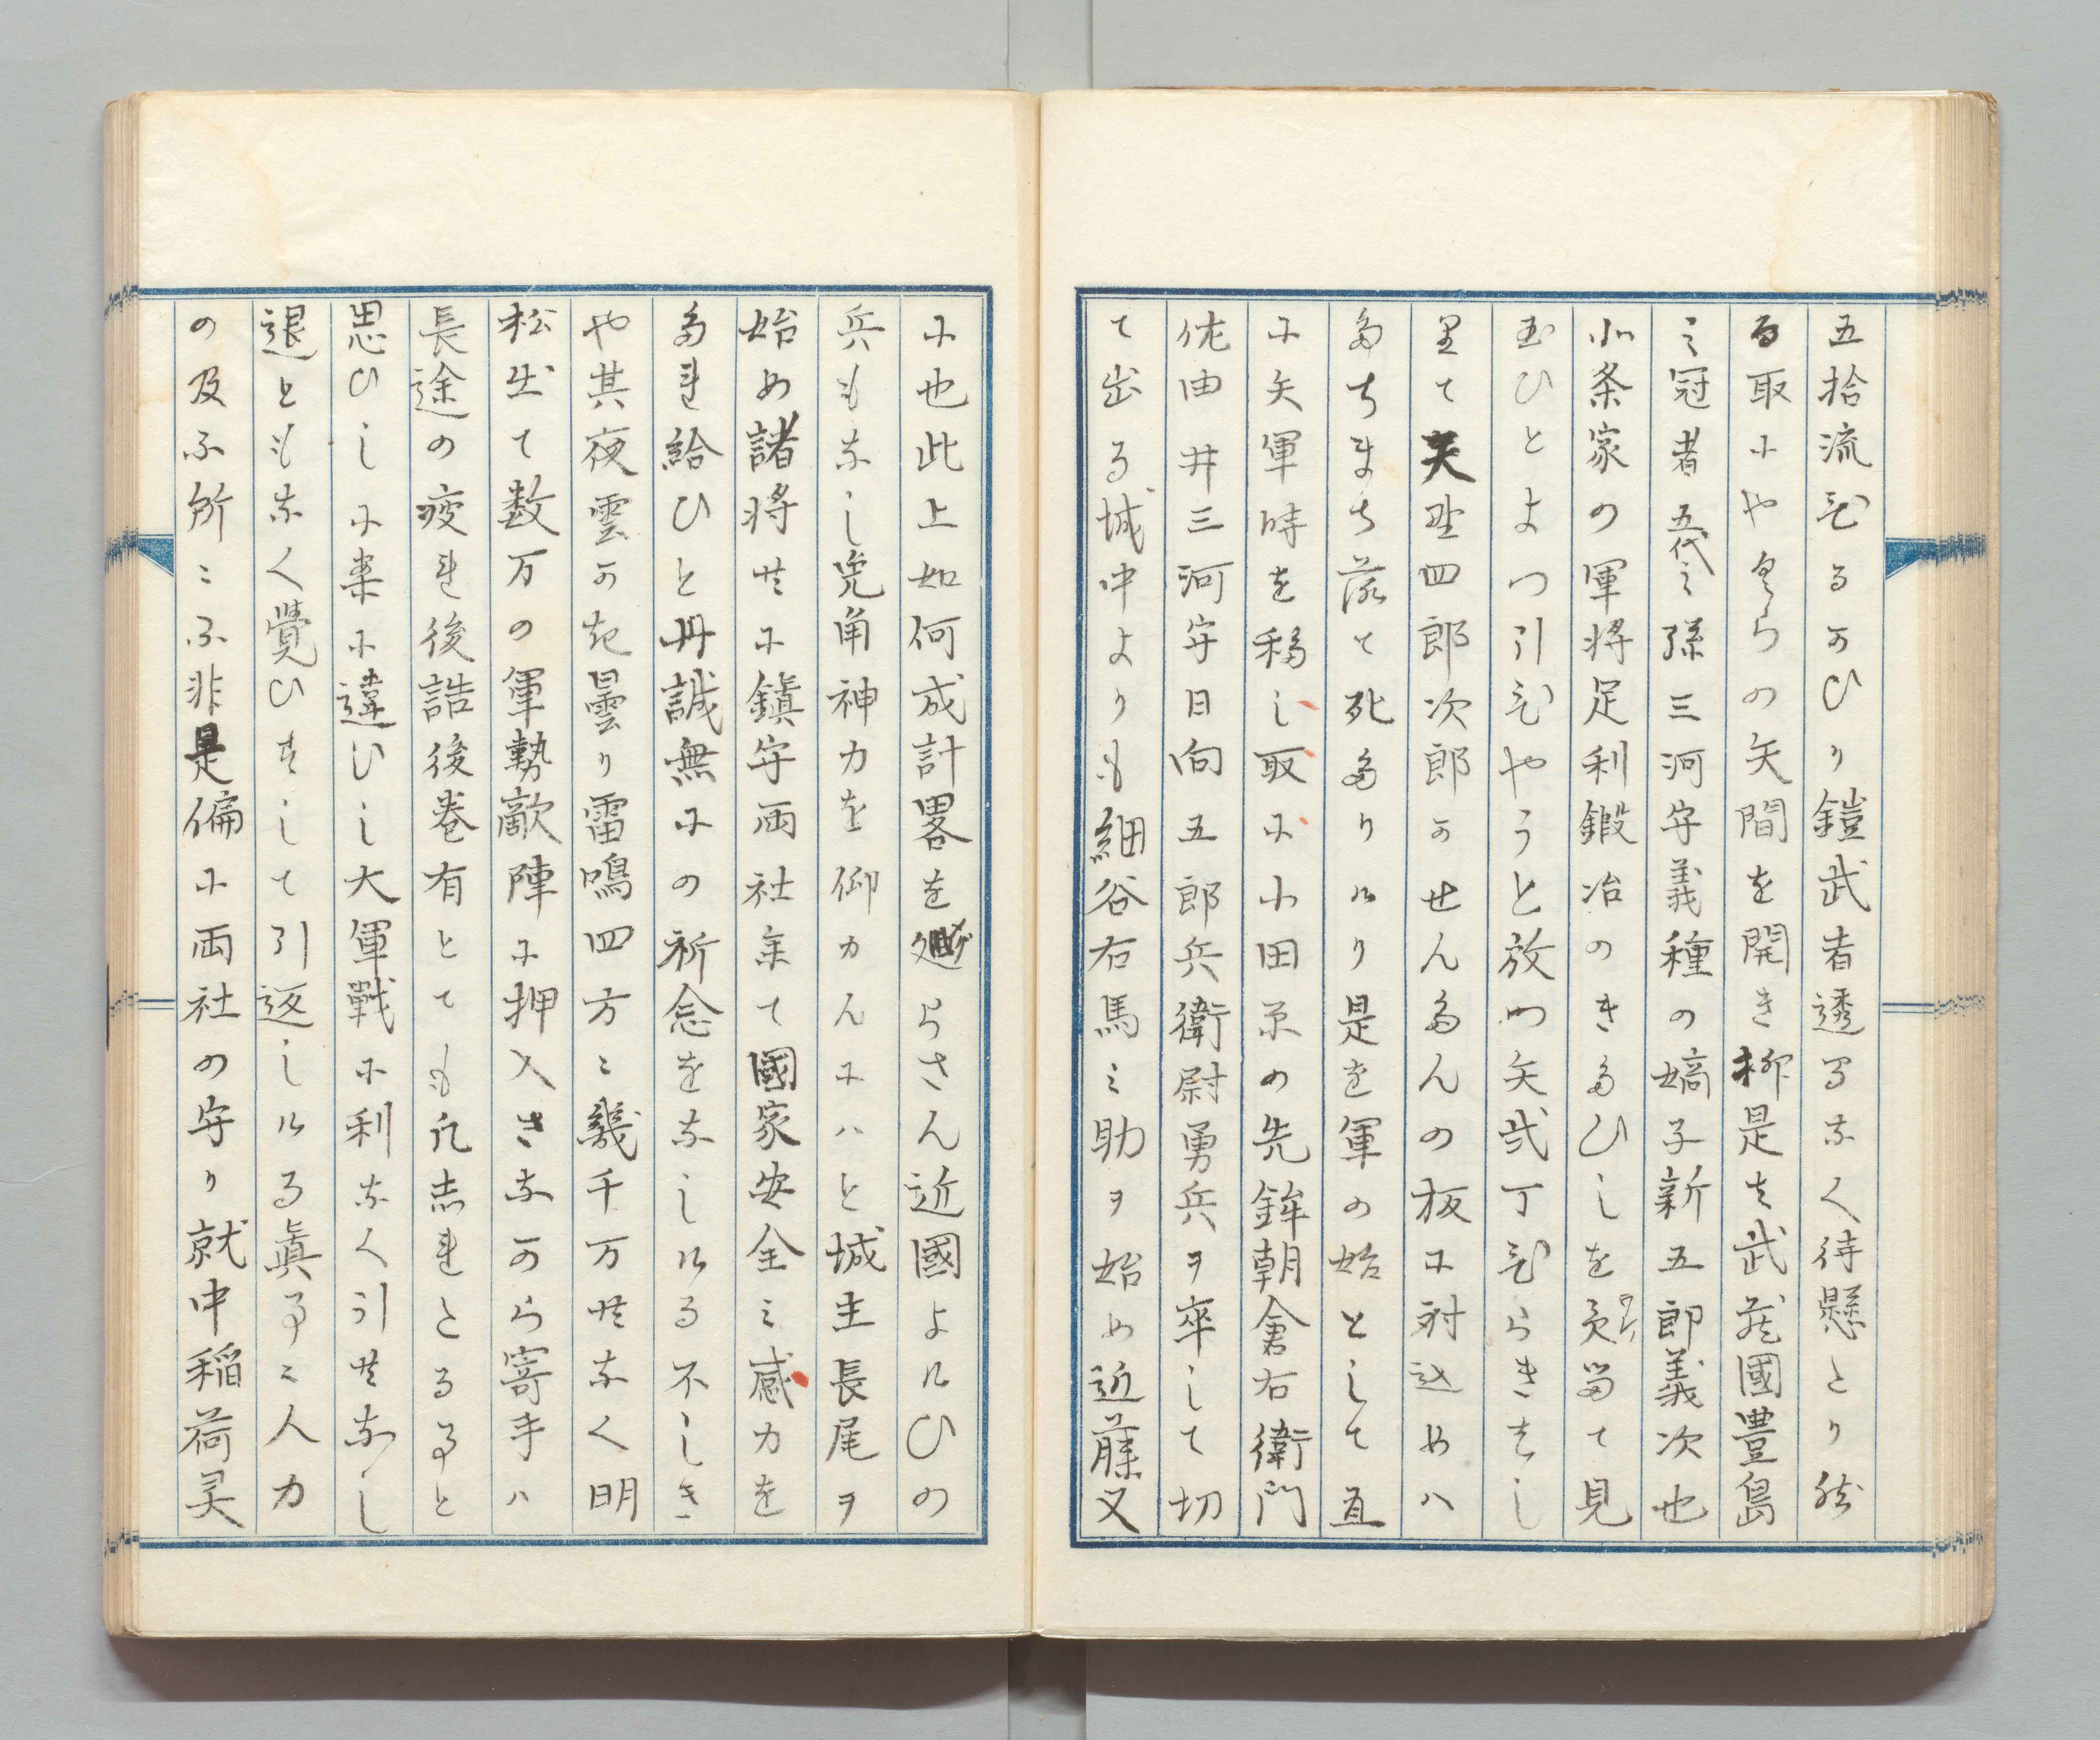 五拾流飛るかひり鎧武者透るなく待懸とり然
る取にやくらの矢間を開き抑是は武蔵國豊島
之冠者五代之孫三河守義種の嫡子新五郎義次也
北条家の軍将足利鍛冶のきたひしを受留て見
玉ひとよつ引ひやうと放つ矢弐丁ひらきはし
里て天野四郎次郎かせんたんの板に射込めハ
たちまち落て死たりけり是を軍の始として直
に矢軍時を移し取に小田原の先鉾朝倉右衛門
佐由井三河守日向五郎兵衛尉勇兵ヲ率して切
て出る城中よりも細谷右馬之助ヲ始め近藤又
に也此上如何成計畧を廻らさん近國よけひの
兵もなし兎角神力を仰カんにハと城主長尾ヲ
始め諸将共に鎮守両社集て國家安全之感力を
たれ給ひと丹誠無にの祈念をなしける不しき
や其夜雲かき曇り雷鳴四方ニ幾千万共なく明
松出て数万の軍勢敵陣に押入さなから寄手ハ
長途の疲れ後詰後巻有とても兵志れとる事と
思ひしに案に違ひし大軍戦に利なく引共なし
退ともなく覚ひすして引返しける眞事ニ人力
の及ふ所ニふ非是偏に両社の守り就中稲荷霊